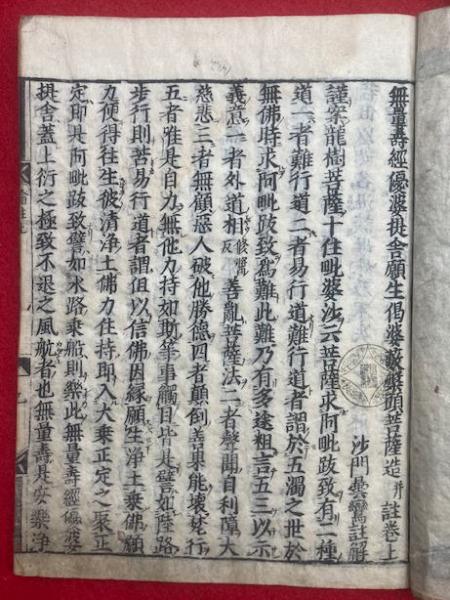 無量壽經優婆提舍願生偈婆藪槃頭菩薩造并註卷上
沙門曇鸞註解
謹案龍樹菩薩十住毗婆沙云菩薩求阿毗跋致有二種
道一者難行道二者易行道難行道者謂於五濁之世於
無佛時求阿毗跋致為難此難乃有多途粗言五三以示
義意一者外道相修醬反善亂菩薩法二者聲聞自利障大
慈悲三者無顧惡人破他勝德四者顛倒善果能壞梵行
五者唯是自力無他力持如斯等事觸目皆是譬如陸路
步行則苦易行道者謂但以信佛因緣願生淨土乘佛願
力便得往生彼清淨土佛力住持即入大乘正定之聚正
定即是阿毗跋致譬如水路乘船則樂此無量壽經優婆
提舍蓋上衍之極致不退之風航者也無量壽是安樂淨